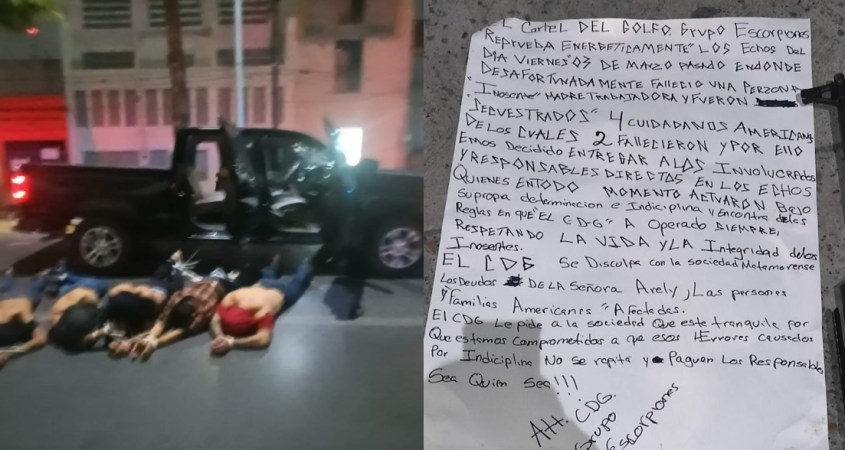 EL Cartel DEL GOLFO, Grupo Escorpiones
REPRUEBA ENERGETICAMENTE "LOS Echos DEL
DIA VIERNES" 03 DE MARZO PASADO EN DONDE
DESAFORTUNADAMENTE FALLECIO UNA PERZONA
"INOSENTE" MADRE TRABAJADORA Y FUERON
SECUESTRADOS" 4 CUIDADANOS AMERICANS
DE LOS CUALES 2 FALLECIERON Y POR ELLO
EMOS DECIDIDO ENTREGAR A LOS INVOLUCRADOS
Y RESPONSABLES DIRECTOS EN LOS ECHOS
QUIENES EN TODO MOMENTO ACTUARON BAJO
Su propia determinacion e Indiciplina y Encontra de las
Reglas EN QUE "EL CDG" A Operado SIEMPRE,
RESPETANDO LA VIDA Y LA Integridad de los
Inosentes.
EL CDG Se Disculpa con la sociedad Matamorense
Los Deudos DE LA SEÑORA Arely, Las personas
y "Familias Americanas" Afectadas.
El CDG Le pide a la sociedad Que este tranquila por
Que estamos Comprometidos a que esos Errores causados
Por Indiciplina No se repita y Paguen Los Responsables
Sea Quien Sea!!!
Att. CDG.
Grupo
Escorpiones